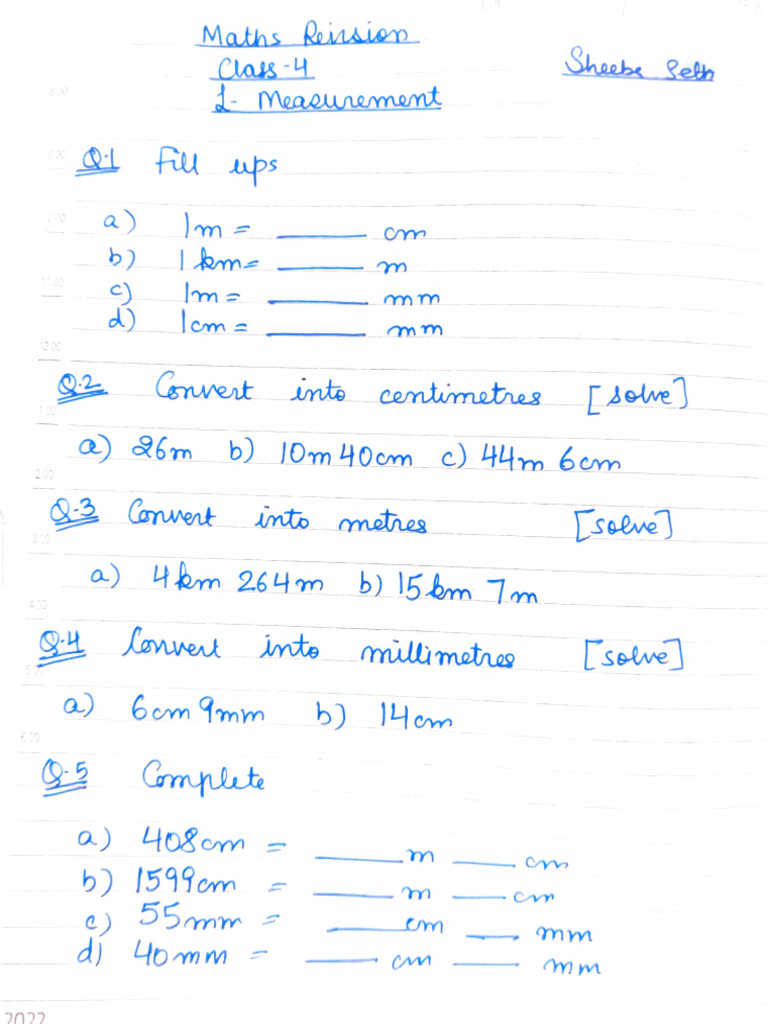 Maths Reission
Class-4
Sheeba Seth
1- Measurement
Q.1 Fill ups
a) 1m = ______ cm
b) 1 km= ______ m
c) 1m = ______ mm
d) 1cm = ______ mm
Q.2 Convert into centimetres [solve]
a) 26m b) 10m 40cm c) 44m 6cm
Q.3 Convert into metres [solve]
a) 4km 264m b) 15km 7m
Q.4 Convert into millimetres [solve]
a) 6cm 9mm b) 14cm
Q.5 Complete
a) 408cm = ______ m ____ cm
b) 1599cm = ______ m ____ cm
c) 55mm = ______ cm ____ mm
d) 40mm = ______ cm ____ mm
2022